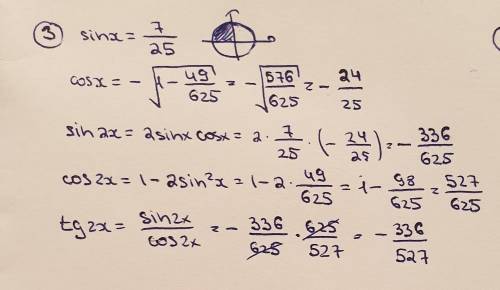 ③ sinx = 7/25
cosx = - √(1 - 49/625) = - √(576/625) = - 24/25
sin2x = 2sinx cosx = 2 · 7/25 · (- 24/25) = - 336/625
cos2x = 1 - 2sin²x = 1 - 2 · 49/625 = 1 - 98/625 = 527/625
tg2x = sin2x/cos2x = - 336/625 · 625/527 = - 336/527